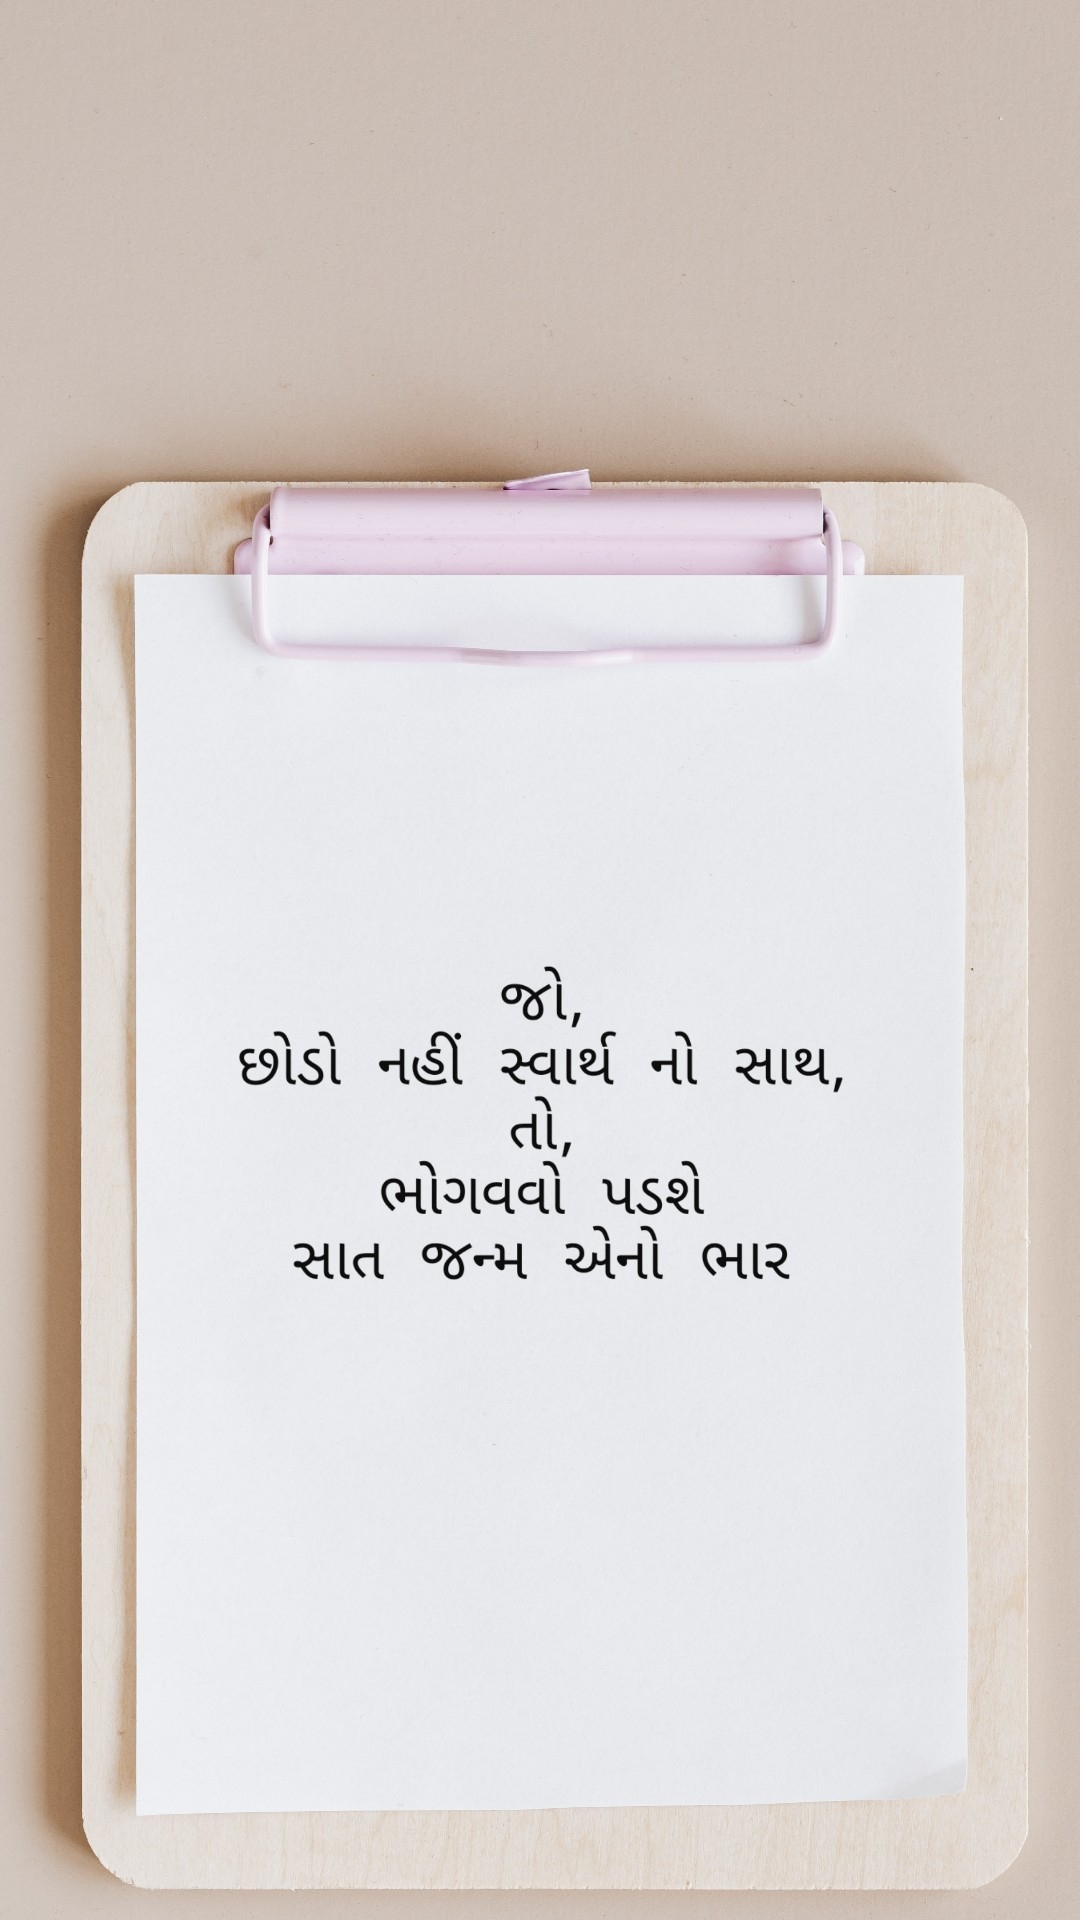 જો,
છોડો નહીં સ્વાર્થ નો સાથ,
તો,
ભોગવવો પડશે
સાત જન્મ એનો ભાર